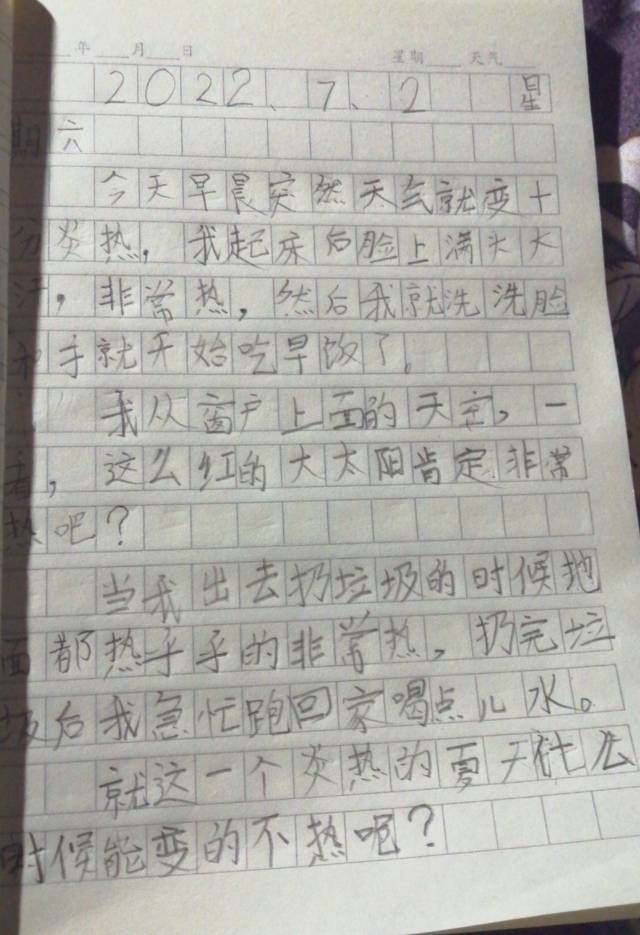 年 月 日 星期 天气
2022、7、2 星
期六
今天早晨突然天气就变十
分炎热，我起床后脸上满头大
汗，非常热，然后我就洗洗脸
和手就开始吃早饭了。
我从窗户上面的天空，一
看，这么红的大太阳肯定非常
热吧？
当我出去扔垃圾的时候地
面都热乎乎的非常热，扔完垃
圾后我急忙跑回家喝点儿水。
就这一个炎热的夏天什么
时候能变的不热呢？